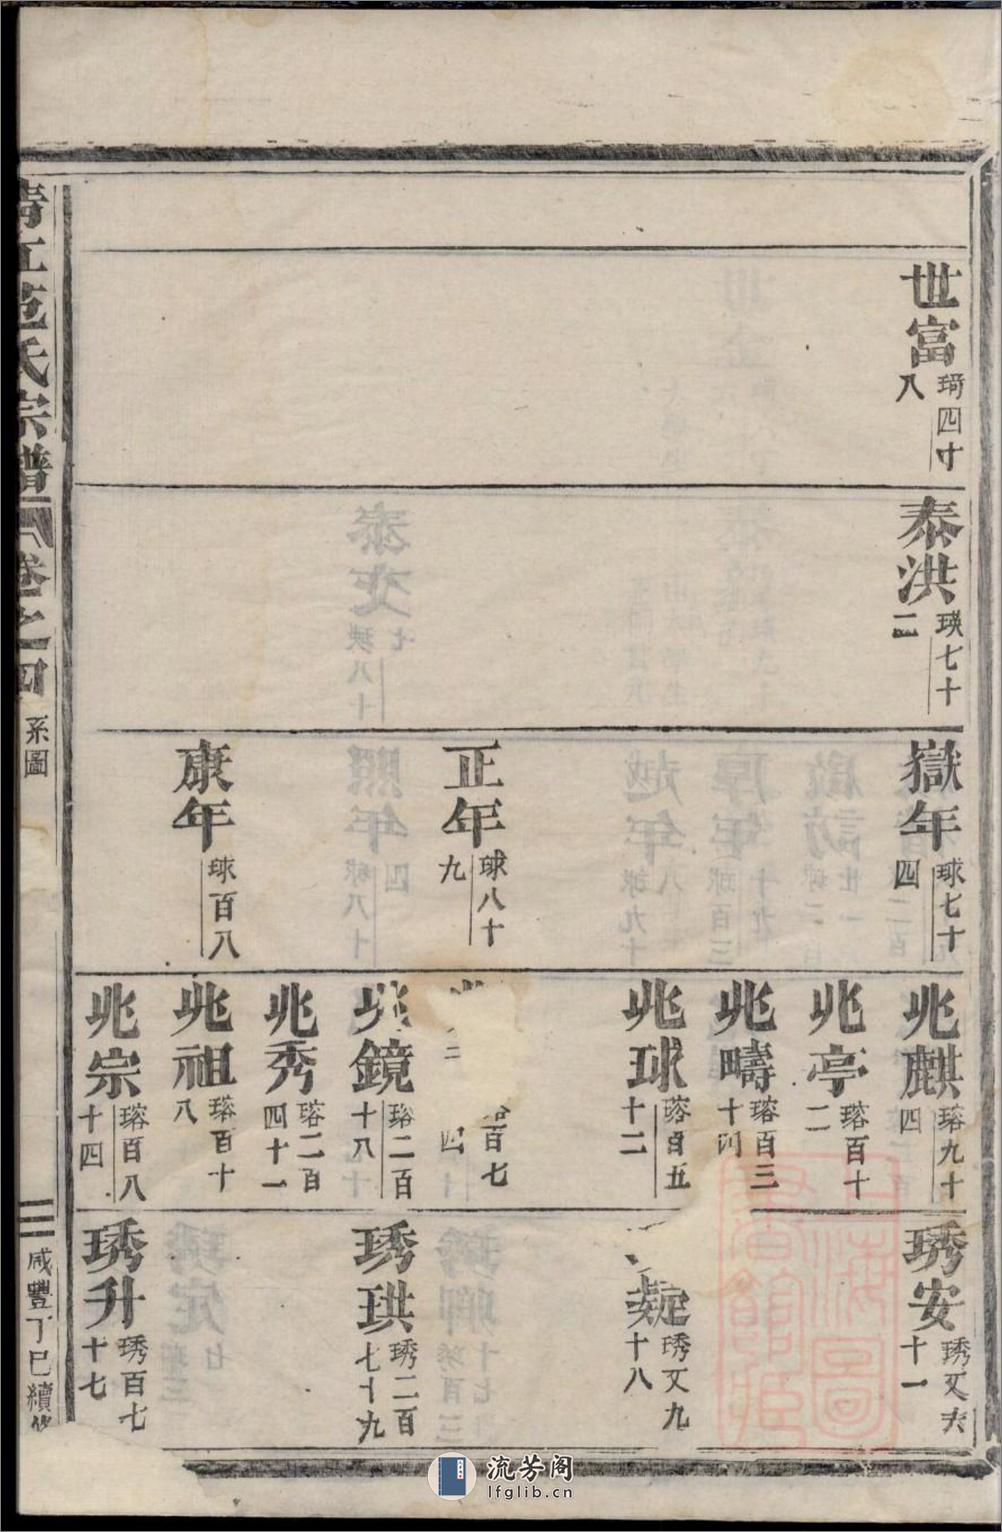 世富
琦四十
八
泰洪
瑛七十
二
嶽年
球七十
四
正年
球八十
九
康年
球百八
兆麒
瑢九十
四
兆亭
瑢百十
二
兆疇
瑢百三
十四
兆球
瑢百五
十二
百七
四
兆鏡
瑢二百
十八
兆秀
瑢二百
四十一
兆祖
瑢百十
八
兆宗
瑢百八
十四
琇安
琇
十一
琇
十八
琇珙
琇二百
七十九
琇升
琇百七
十七
清江范氏宗譜
卷之四
系圖
三
咸豐丁巳續修
上海圖書館藏
流芳阁
lfglib.cn